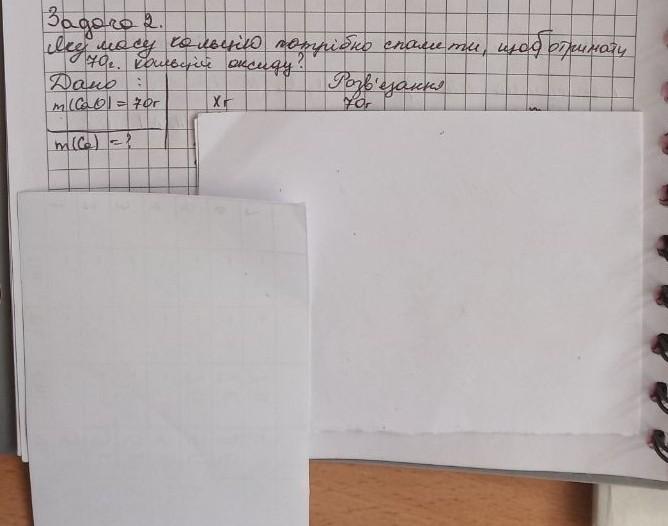 Задача 2.
Яку масу кальцію потрібно спалити, щоб отримати
70г. кальцій оксиду?
Дано : Розв'язання
m(CaO) = 70г xг 70г
m(Ca) = ?